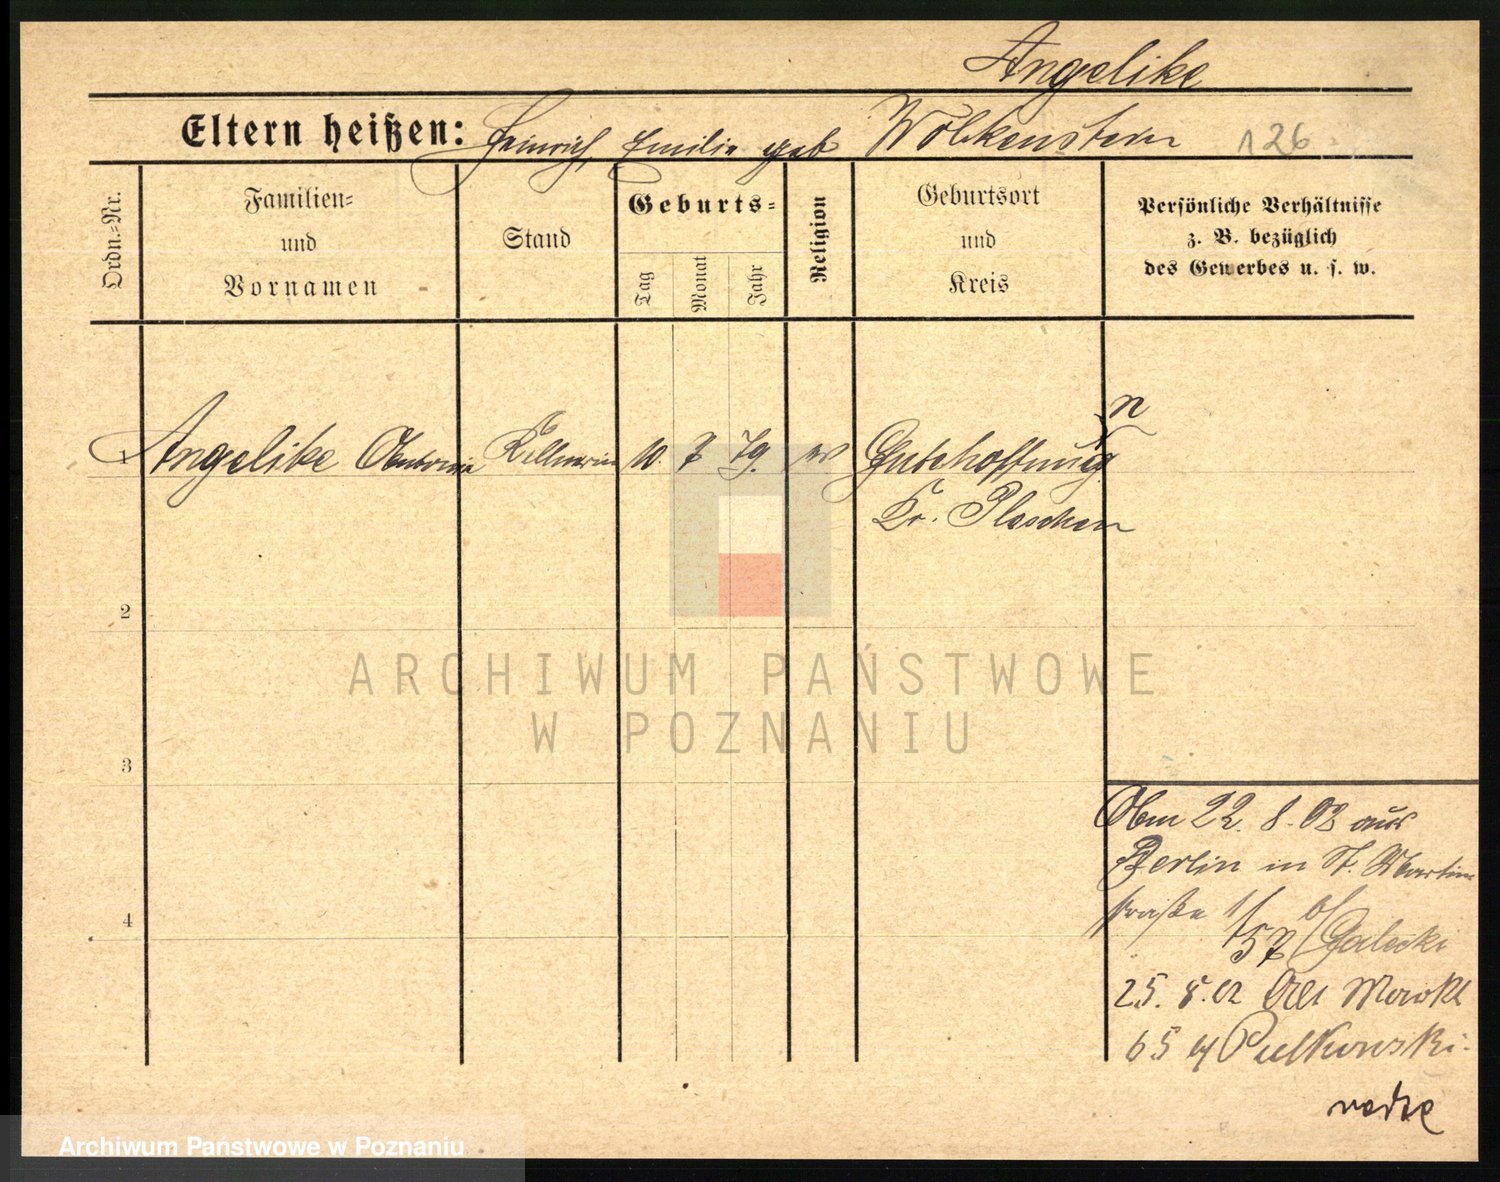 Angelike
Eltern heißen: Heinrich, Emilie geb Wolkenstein 126
Ordn.-Nr.
Familien-
und
Vornamen
Stand
Geburts-
Tag
Monat
Jahr
Religion
Geburtsort
und
Kreis
Persönliche Verhältnisse
z. B. bezüglich
des Gewerbes u. s. w.
1 Angelike Kellnerin 10. 7 79. Gutehoffnung
n
Kr. Pleschen
2
ARCHIWUM PAŃSTWOWE
W POZNANIU
3
22. 8. 02 aus
Berlin in St. Martin
straße 57 b/ Galecki
4
25. 8. 02 Alt Markt
65 Pulkowski.
Archiwum Państwowe w Poznaniu